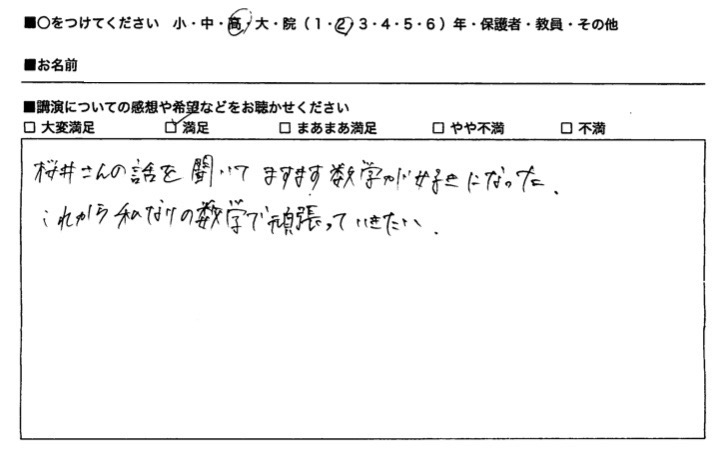 ■○をつけてください 小・中・高・大・院（1・2・3・4・5・6）年・保護者・教員・その他
■お名前
■講演についての感想や希望などをお聴かせください
□ 大変満足 ☑ 満足 □ まあまあ満足 □ やや不満 □ 不満
桜井さんの話を聞いてますます数学が好きになった.
これから私なりの数学で頑張っていきたい.